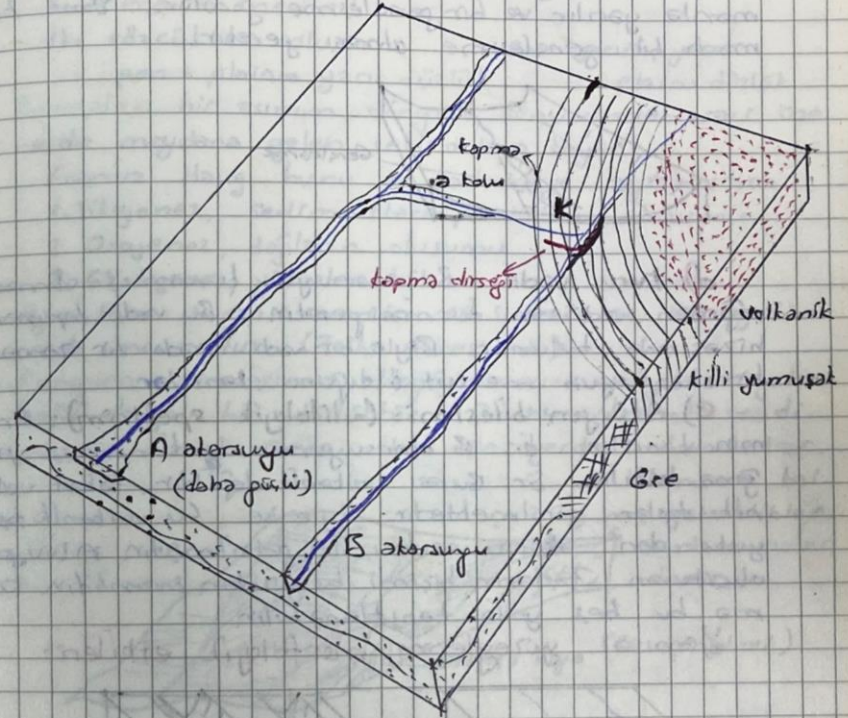 kapma
a kolu
K
kapma dirseği
volkanik
killi yumuşak
A akarsuyu
(daha güçlü)
B akarsuyu